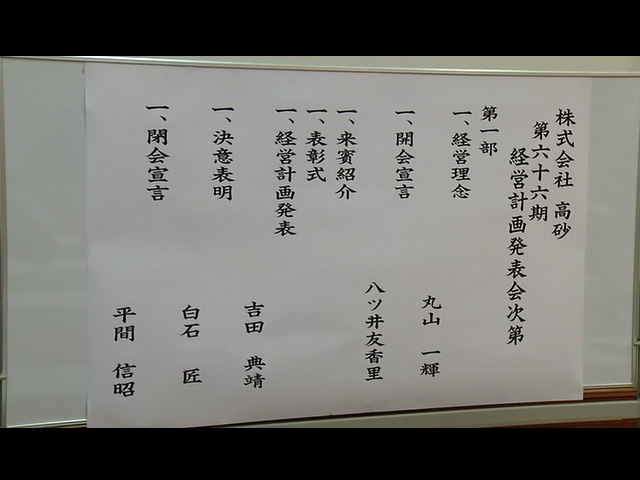 株式会社 高砂
第六十六期
経営計画発表会次第
第一部
一、経営理念
丸山 一輝
一、開会宣言
八ツ井友香里
一、来賓紹介
一、表彰式
一、経営計画発表
吉田 典靖
一、決意表明
白石 匠
一、閉会宣言
平間 信昭